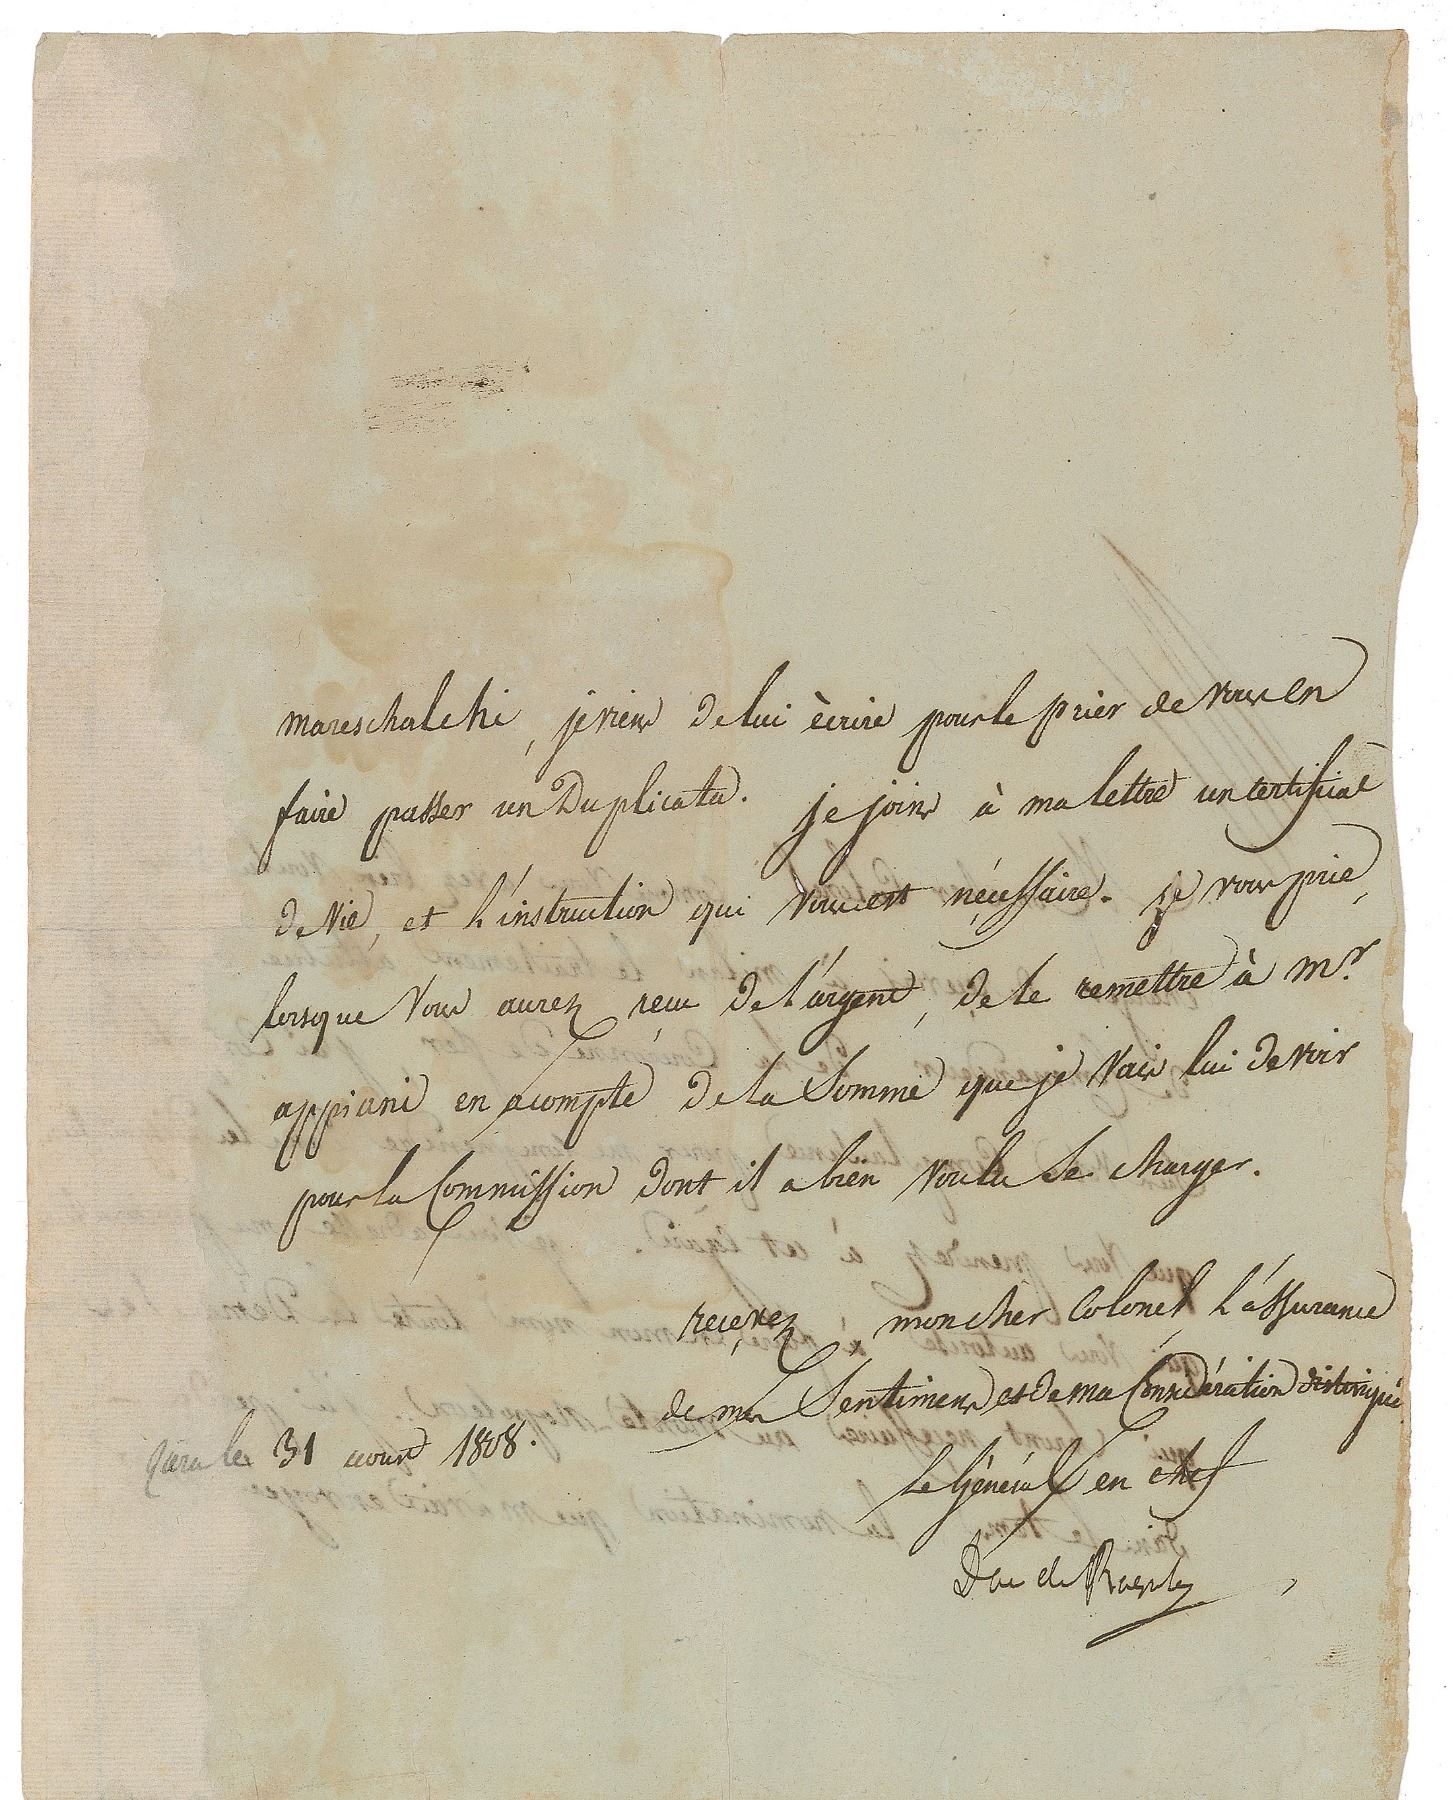 mareschalchi, je viens de lui écrire pour le prier de vous en
faire passer un Duplicata. je joins à ma lettre un certificat
de vie, et l'instruction qui vous est nécessaire. je vous prie,
lorsque vous aurez reçu de l'argent, de le remettre à Mr.
appiani en acompte de la somme que je vais lui devoir
pour la Commission dont il a bien voulu se charger.
recevez, mon cher Colonel, l'assurance
de mes Sentimens et de ma Considération distingué
le 31 aoust 1808.
Le Général en chef
Duc de Raguse